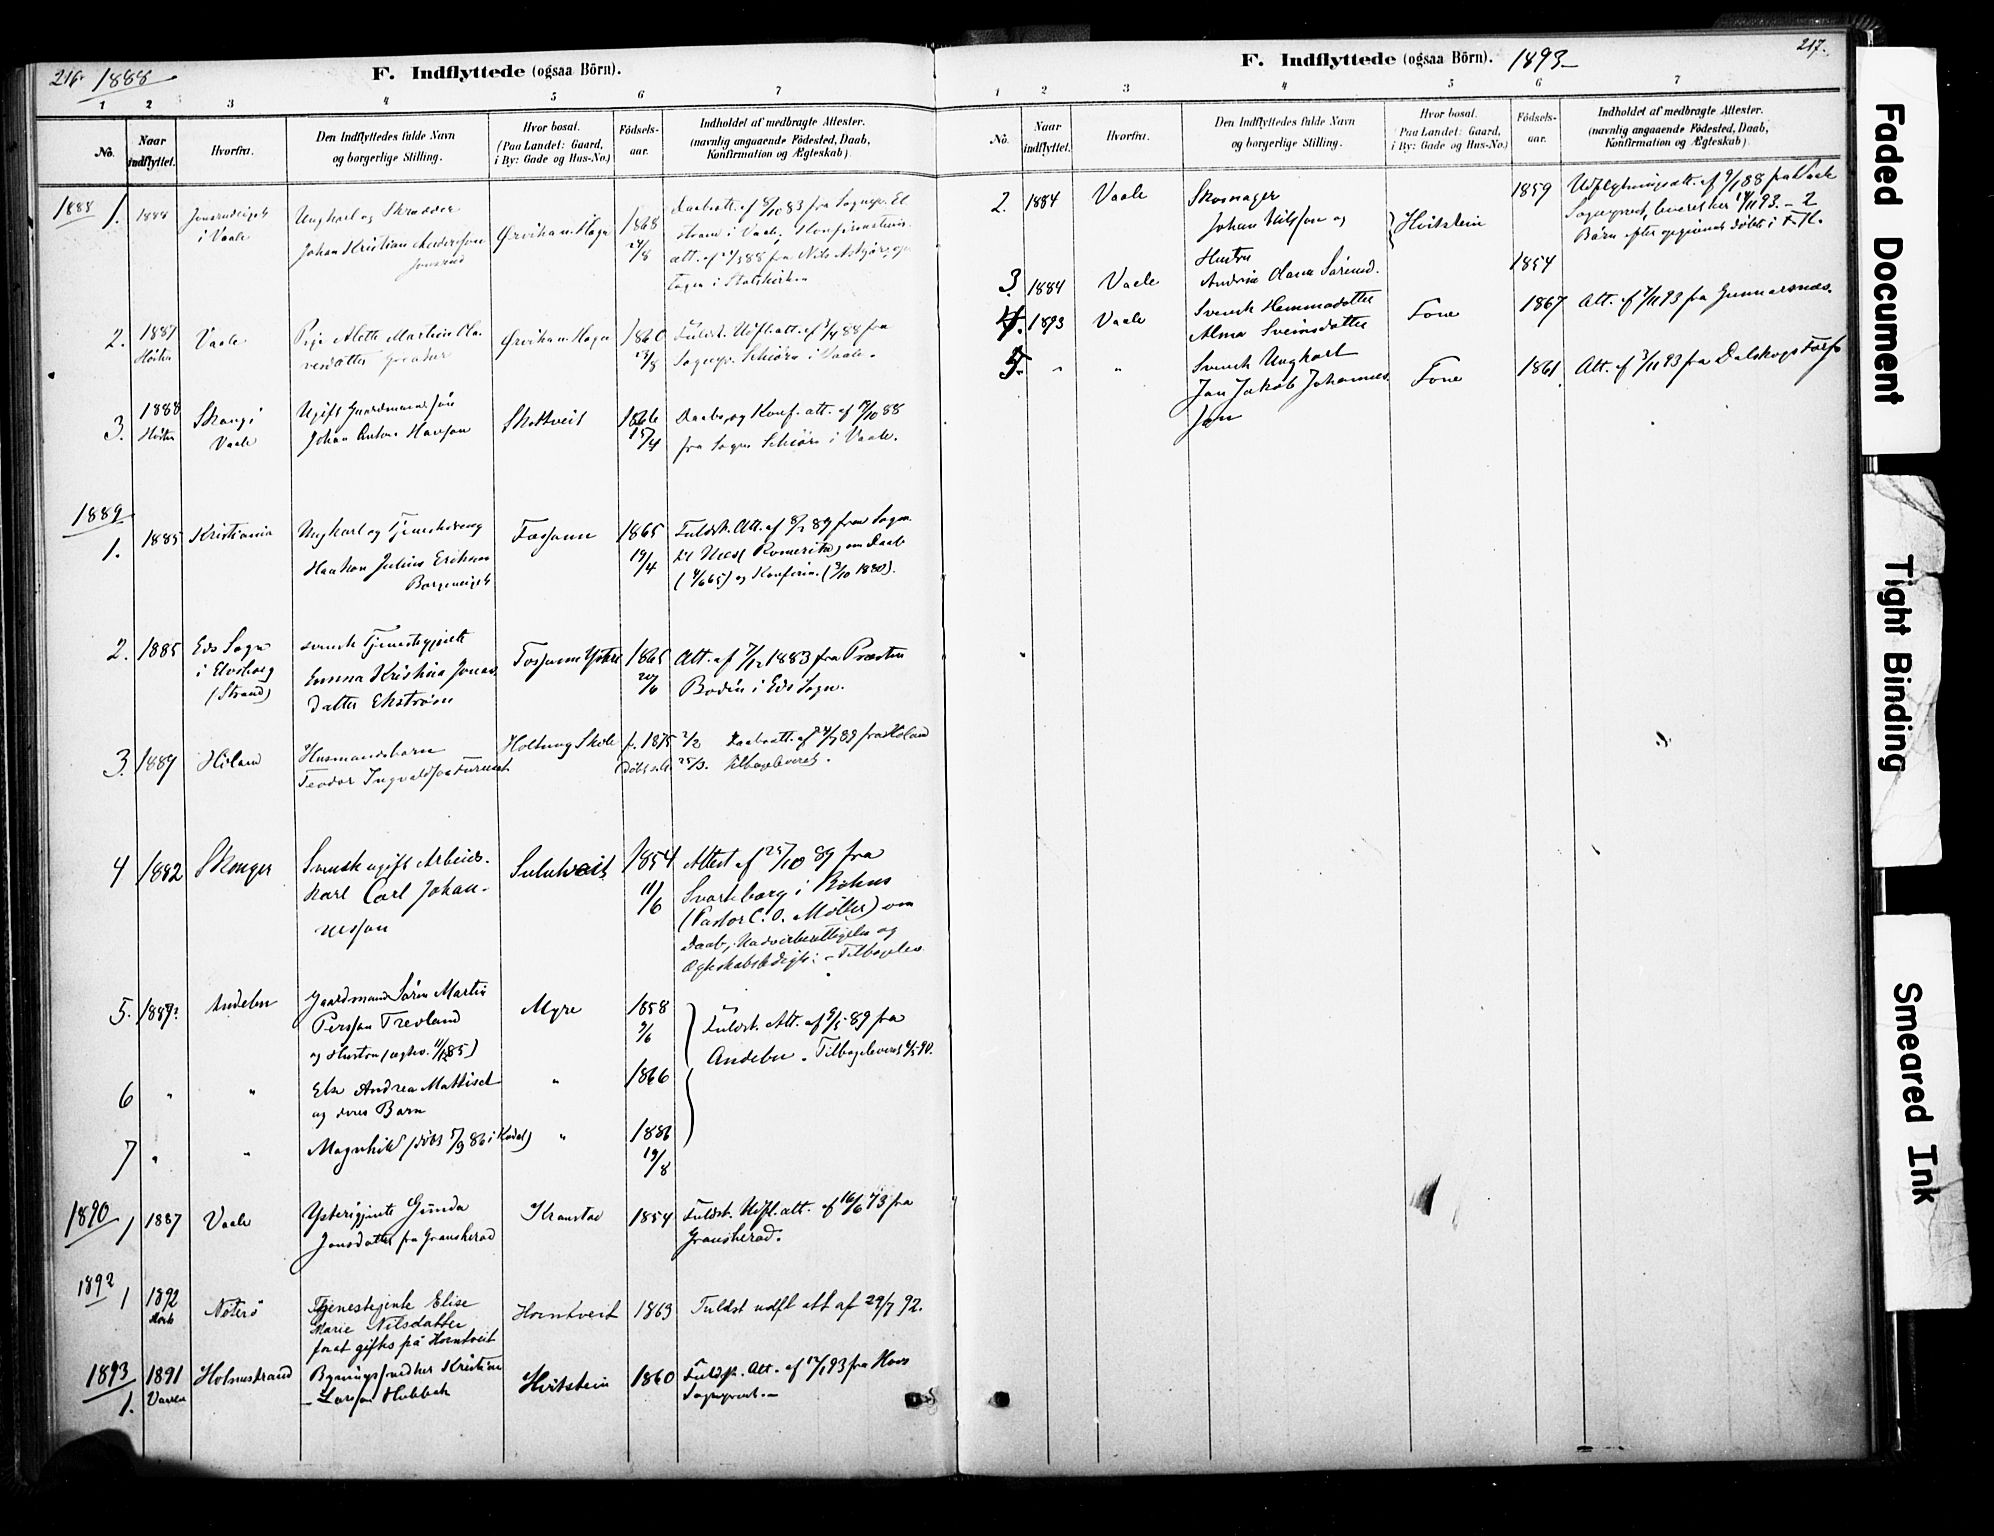 216. 1888
F. Indflyttede (ogsaa Börn).
1 2 3 4 5 6 7
No.
Naar indflyttet.
Hvorfra.
Den Indflyttedes fulde Navn
og borgerlige Stilling.
Hvor bosat.
(Paa Landet: Gaard,
i By: Gade og Hus-No.)
Fødsels-
aar.
Indholdet af medbragte Attester.
(navnlig angaaende Födested, Daab,
Konfirmation og Ægteskab).
1888
1. 1888
i Vaale
Ungkarl og Skrædder
Johan Kristian Anderson
1868
24/8
Daabsatt. af 8/10 83 fra Sognepr.
i Vaale, Konfirmations-
att. af
fra Nils
i
2. 1887 Høsten
Vaale
Pige Alette Martine Ola-
vesdatter
1860
Fuldst. Udfl. att. af 3/4 88 fra
Sognepr. Schiörn i Vaale.
3. 1888 Høsten
i Vaale
Ugift Gaardmandssön
Johan Anton Hanson
Skottveit
1866
15/4
Daabs og Konf. att. af 17/10 88
fra Sogn. Schiörn i Vaale.
1889
1. 1885 Kristiania
Ungkarl og Tjenestedreng
Haakon Julius Erikson
Fossann
1865
19/4
Fuldst. Att. af 8/2 89 fra Sogn.
til Næs Romerike, om Daab
(4/6 65) og Konfirm. (3/10 1880).
2. 1885
Eds Sogn
i Elvsborg
(Strand)
svensk Tjenestepigen
Emma Kristina Jonas
datter Ekström
1865
20/6
Att. af 7/12 1883 fra Præsten
Bodin i Eds Sogn.
3. 1889 Hiland
Husmandsbarn
Teodor Ingvaldson
Holtung Skole
f. 1875 2/2
døbt 25/3.
Daabsatt. af 24/7 89 fra Höland
tilbageleveret.
4 1882 Skonger
Svensk ugift Arbeids-
karl Carl Johan-
nesson
Sulutveit
1854
11/6
Attest af 25/10 89 fra
Svarteborg i Bohus
(Pastor C. O. Möller) om
Daab, Nadverberettigelse og
Ægteskabsledighed. - Tilbagelev.
5. 1889? Andebu
Gaardmand Sören Martin
Persson Trevland
og Hustru (ægtev. 11/12 85)
Myre
1858
9/6
Fuldst. Att. af 9/5 89 fra
Andebu. Tilbageleveret 4/5 90.
6 " "
Else Andrea Mattisd.
og deres Barn
" 1866
7 " "
Magnhild (döbt 5/9 86 i Kodal)
" 1886
19/8
1890
1 1887 Vaale
Ysterigjente Gunda
Jonsdatter fra Gransherad
Kranstad
1854
Fuldst. Udfl. att. af 16/6 73 fra
Gransherad.
1892
1 1892
Nøterö
Tjenestejente Elise
Marie Nilsdatter
forat giftes på Horntveit
Horntveit 1863
Fuldst udfl att af 29/7 92.
1893
1. 1891 Holmestrand
Bygningssnedker Kristian
Larson Hubbak
Hvitstein 1860
Fuldst. Att. af 12/1 93 fra Hovs
Sogneprest.
F. Indflyttede (ogsaa Börn). 1893
217.
1 2 3 4 5 6 7
No.
Naar indflyttet.
Hvorfra.
Den Indflyttedes fulde Navn
og borgerlige Stilling.
Hvor bosat.
(Paa Landet: Gaard,
i By: Gade og Hus-No.)
Fødsels-
aar.
Indholdet af medbragte Attester.
(navnlig angaaende Födested, Daab,
Konfirmation og Ægteskab).
2. 1884 Vaale
Skomager
Johan Nilsson og
Hvitstein
1859
Udflytningsatt. af 9/1 88 fra Vaale
Sogneprest, leveret her 17/11 93. - 2
Börn efter opgivende döbte i
3. 1884 Vaale
Hustru
Andrine Olava Sörensd.
1854
4. 1893 Vaale
Svensk Hemmadotter
Alma Sveinsdotter
Fone 1867
Att. af 7/11 93 fra Gunnarsnäs.
5. " "
Svensk Ungkarl
Jan Jakob Johannes-
son
Fone 1861
Att. af 3/11 93 fra Dalskogs
Faded Document
Tight Binding
Smeared Ink